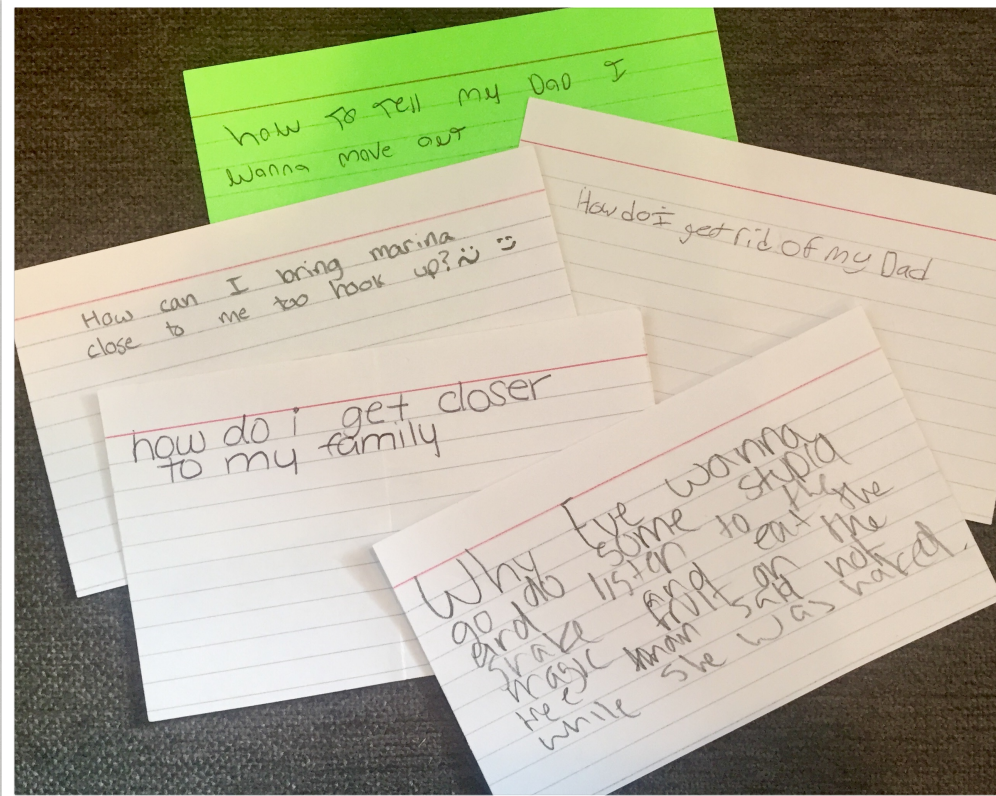 how To Tell my Dad I
wanna move out
How do I get rid of my Dad
How can I bring marina
close to me too hook up?
how do i get closer
to my family
Why Eve wanna
go do some stupid
and listen to the
snake and eat the
magic fruit on the
tree man said not
while she was naked.